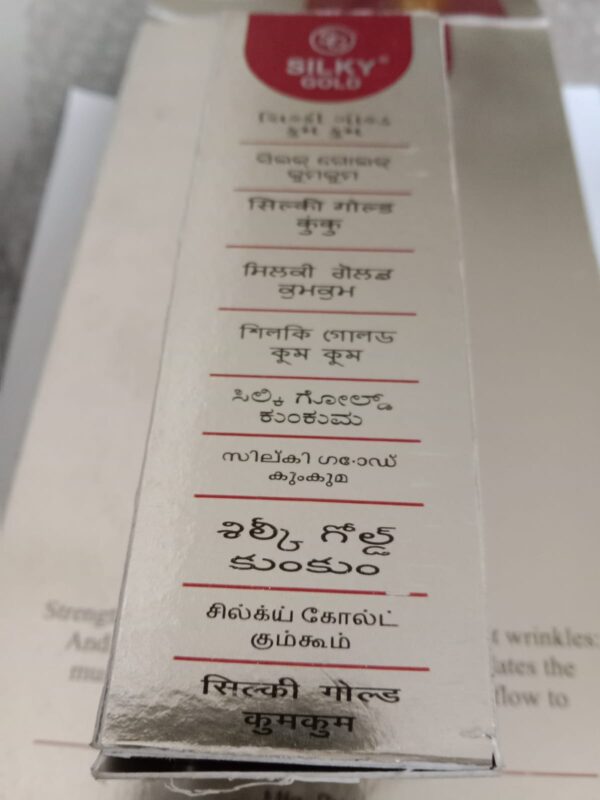 SILKY®
GOLD
सिल्की गोल्ड
कुंकु
ਸਿਲਕੀ ਗੋਲਡ
ਕੁਮਕੁਮ
শিলকি গোলড
কুম কুম
ಸಿಲ್ಕಿ ಗೋಲ್ಡ್
ಕುಂಕುಮ
സില്കി
കുംകുമ
శిల్కీ గోల్డ్
కుంకుం
சில்க்ய் கோல்ட்
கும்கூம்
सिल्की गोल्ड
कुमकुम
And
wrinkles:
the
flow to